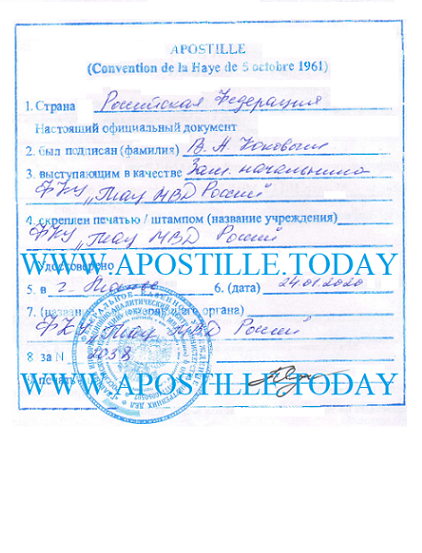 APOSTILLE
(Convention de la Haye de 5 octobre 1961)
1. Страна Российская Федерация
Настоящий официальный документ
2. был подписан (фамилия) В. А.
3. выступающим в качестве Зам. начальника
ФКУ „ГИАЦ МВД России"
4. скреплен печатью / штампом (название учреждения)
ФКУ „ГИАЦ МВД России
WWW.APOSTILLE.TODAY
Удостоверено
5. в г. Москве 6. (дата) 24.01.2020
7. (название удостоверяющего органа)
ФКУ „ГИАЦ МВД России
8. за N 2058
WWW.APOSTILLE.TODAY